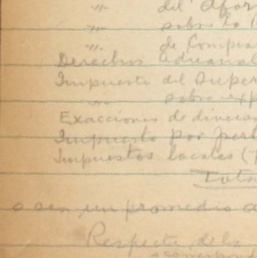 " del Afor
" sobre la (
" de Compra
Derechos aduanal
Impuesto del Super
" sobre exp
Exacciones de diversa
Impuesto por perl
Impuestos locales (
Total
o sea un promedio d
Respecto de los